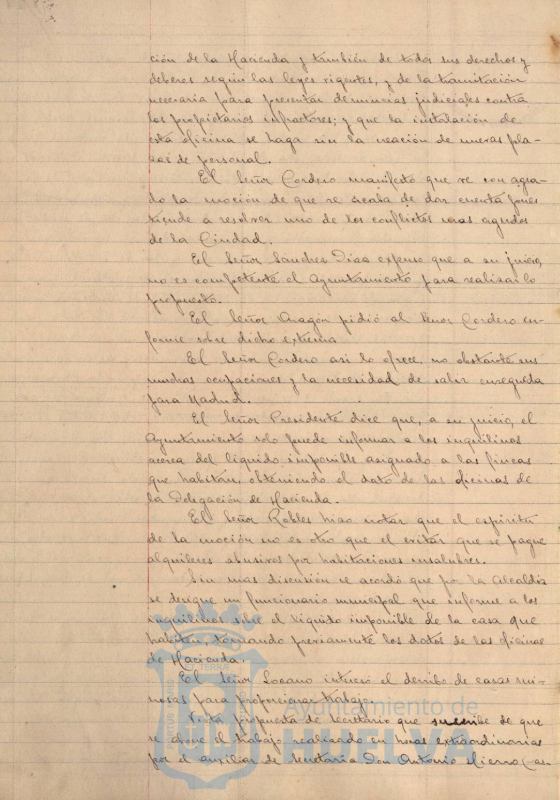 ción de la Hacienda y también de todos sus derechos y
deberes según las leyes vigentes, y de la tramitación
necesaria para presentar denuncias judiciales contra
los propietarios infractores; y que la instalación de
esta oficina se haga sin la creación de nuevas pla-
zas de personal.
El Señor Cordero manifestó que ve con agra-
do la moción de que se acaba de dar cuenta pues
tiende a resolver uno de los conflictos mas agudos
de la Ciudad.
El Señor Sanchez Dias expuso que a su juicio,
no es competente el Ayuntamiento para realizar lo
propuesto.
El Señor Aragón pidió al Señor Cordero in-
forme sobre dicho extremo.
El Señor Cordero asi lo ofrece, no obstante sus
muchas ocupaciones y la necesidad de salir enseguida
para Madrid.
El Señor Presidente dice que, a su juicio, el
Ayuntamiento solo puede informar a los inquilinos
acerca del líquido imponible asignado a las fincas
que habitan, obteniendo el dato de las oficinas de
la Delegación de Hacienda.
El Señor Robles hizo notar que el espiritu
de la moción no es otro que el evitar que se pague
alquileres abusivos por habitaciones insalubres.
Sin mas discusión se acordó que por la Alcaldía
se designe un funcionario municipal que informe a los
inquilinos sobre el líquido imponible de la casa que
habiten, tomando previamente los datos de las oficinas
de Hacienda.
El Señor Locano interesó el derribo de casas rui-
nosas para proporcionar trabajo.
Vista propuesta de Secretario que suscribe de que
se abone el trabajo realizado en horas extraordinarias
por el auxiliar de Secretaria Don Antonio Hierro (as-
Ayuntamiento de
HUELVA